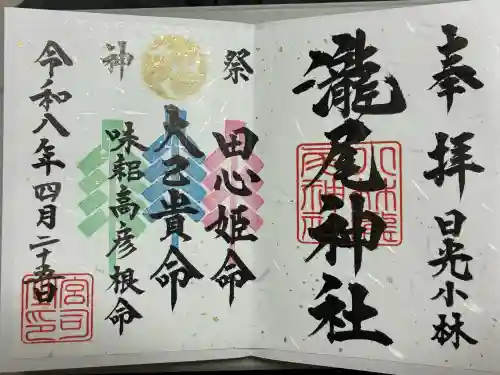 奉拝
日光小林
瀧尾神社
祭神
田心姫命
大己貴命
味耜高彦根命
令和八年四月二十五日
宮司之印